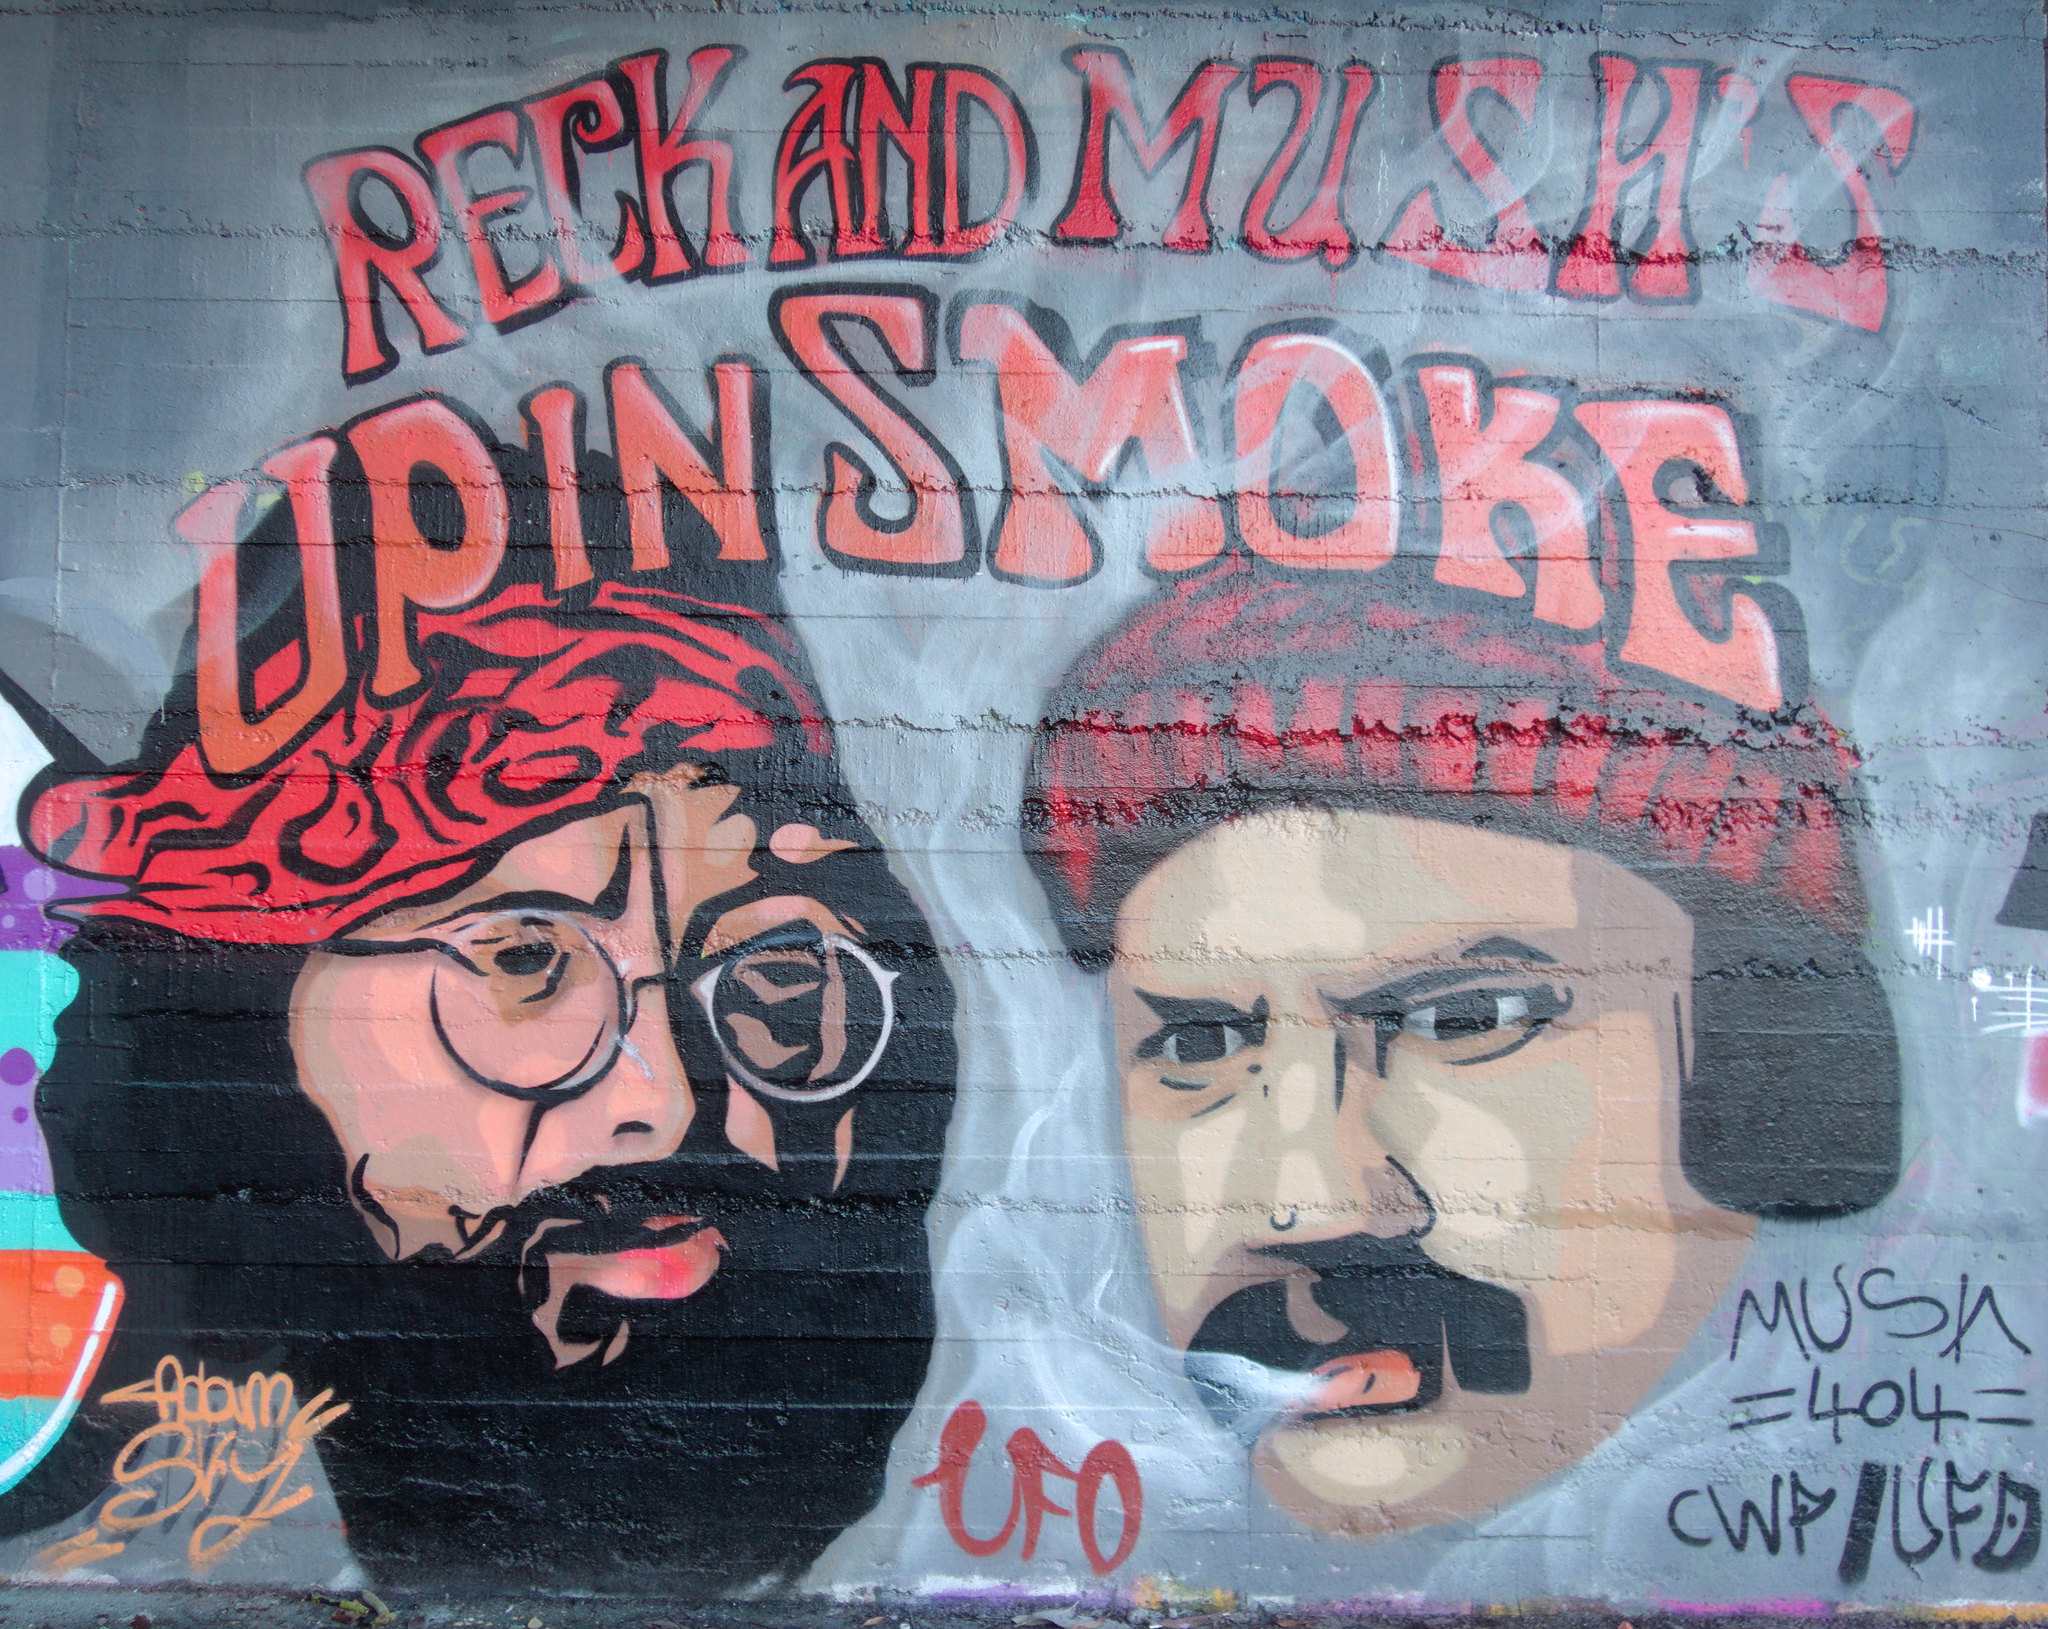 RECK AND MUSH'S
UP IN SMOKE
Adam
Sky
UFO
MUSH
=404=
CWP/UFO